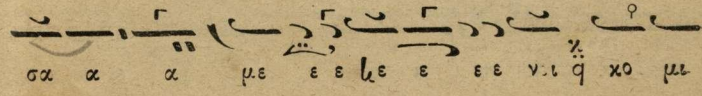 σα α α με ε ε με ε ε ε νι q κο μι